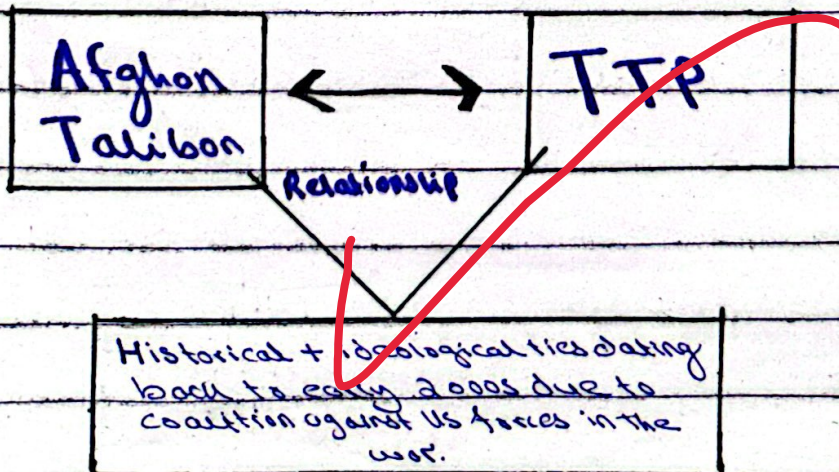 Afghan
Taliban
TTP
Relationship
Historical + ideological ties dating
back to early 2000s due to
coalition against US forces in the
war.